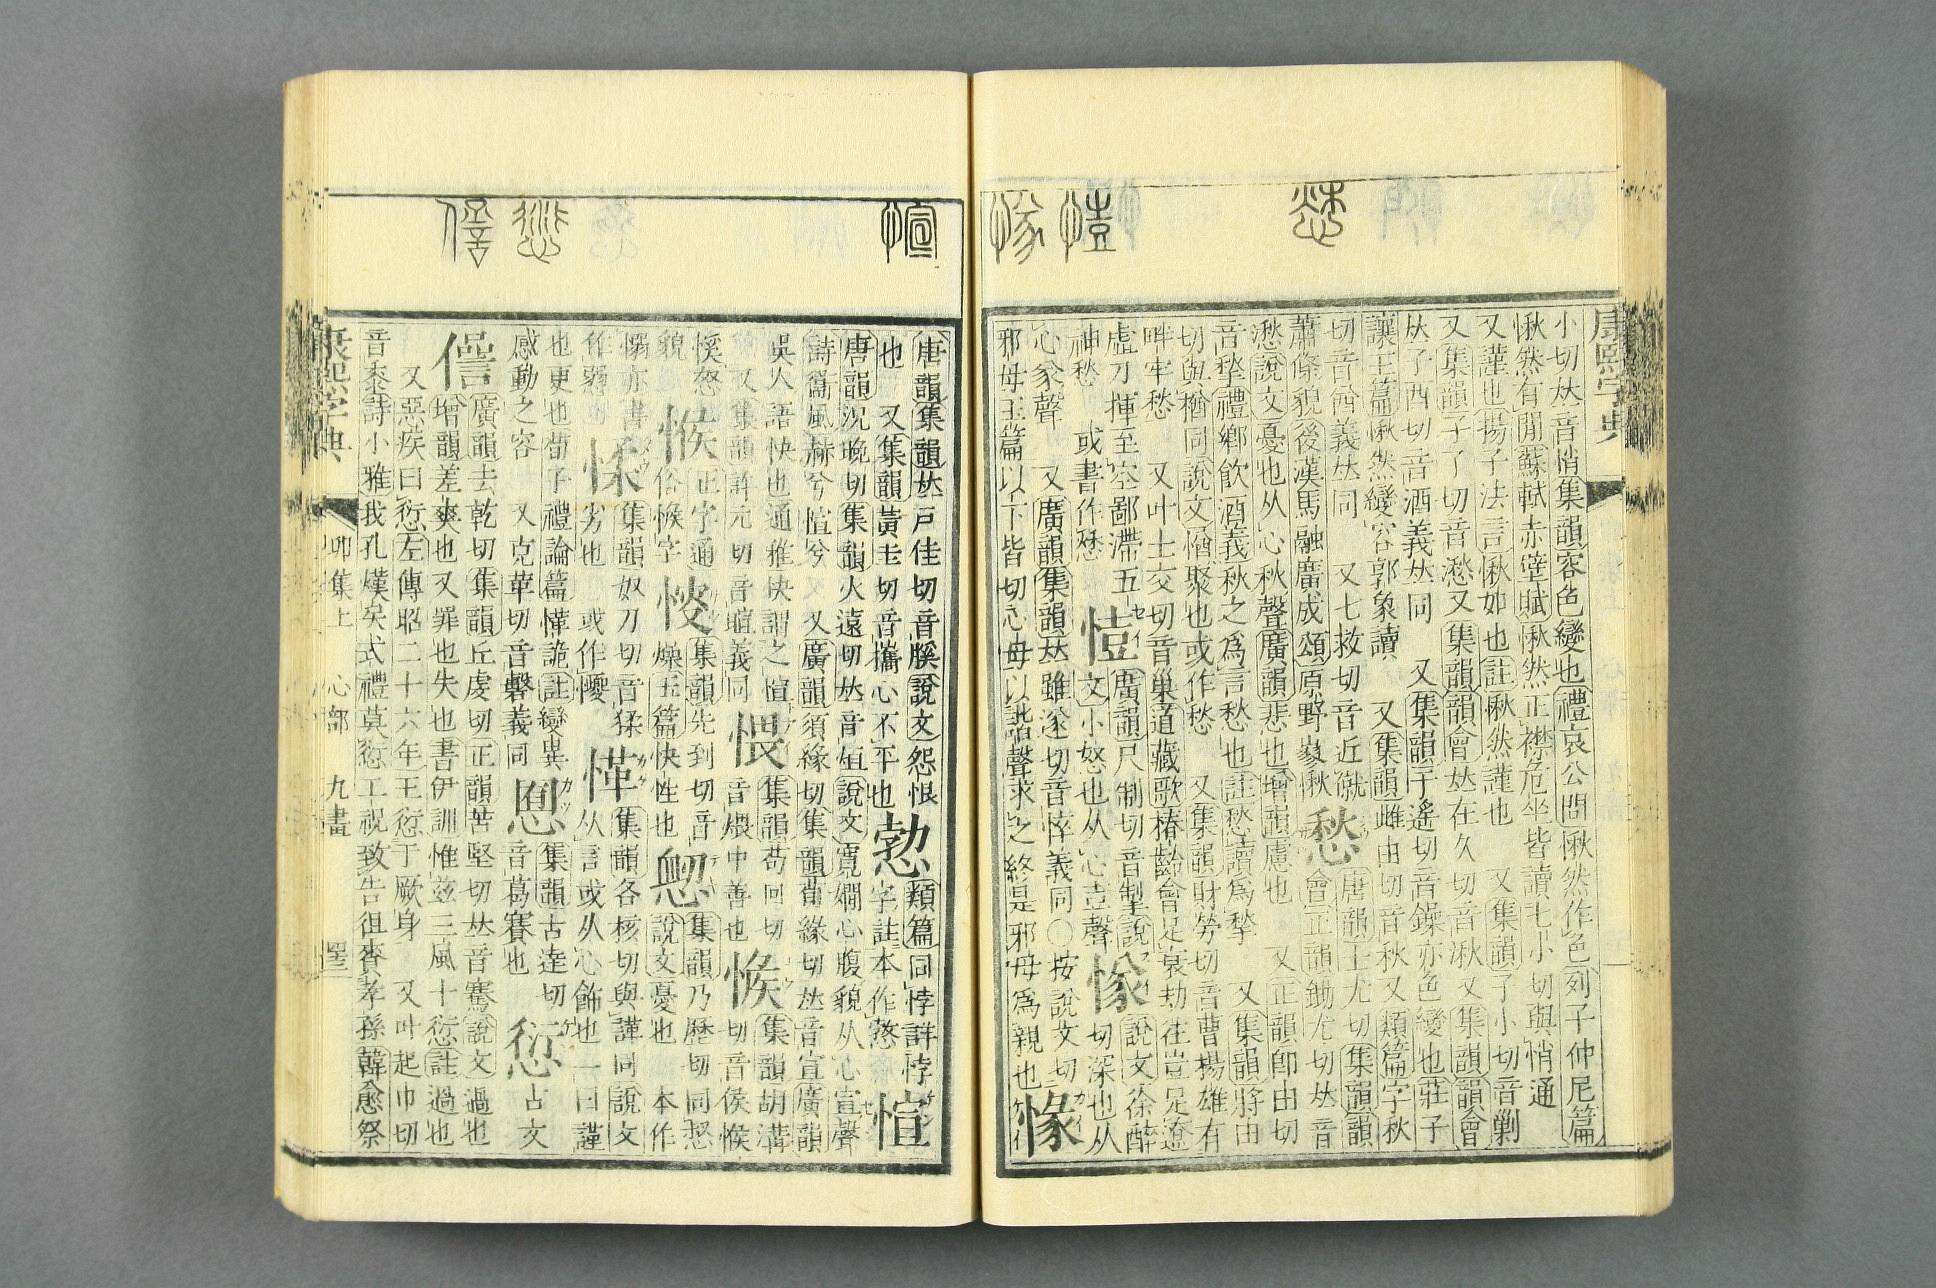 康熙字典
小切𠀤音悄集韻容色變也禮哀公問愀然作色列子仲尼篇
愀然有閒蘇軾赤壁賦愀然正襟危坐皆讀七小切與悄通
又謹也揚子法言愀如也註愀然謹也 又集韻子小切音剿
又集韻子了切音湫又集韻韻會𠀤在久切音湫又集韻韻會
𠀤子酉切音酒義𠀤同 又集韻千遙切音鍫亦色變也莊子
讓王篇愀然變容郭象讀 又集韻雌由切音秋又類篇字秋
切音酋義𠀤同 又七救切音近蹴
蕭條貌後漢馬融廣成頌原野嵺愀
愁
唐韻士尤切集韻韻
會正韻鋤尤切𠀤音
愁說文憂也从心秋聲廣韻悲也增韻慮也 又正韻卽由切
音揫禮鄉飲酒義秋之爲言愁也註愁讀爲揫 又集韻將由
切與揂同說文揂聚也或作愁 又集韻財勞切音曹揚雄有
畔牢愁 又叶士交切音巢道藏歌椿齡會足衰劫往豈足遼
虛刀揮至空鄙滯五
神愁 或書作
廣韻尺制切音掣說
文小怒也从心壴聲
㥞
說文徐醉
切深也从
心㒸聲 又廣韻集韻𠀤雖遂切音悴義同○按說文切
邪母玉篇以下皆切心母以諧聲求之終是邪母爲親也
唐韻集韻𠀤戸佳切音膎說文怨恨
也 又集韻黃圭切音攜心不平也
類篇同悖詳悖
字註本作㦎
愃
唐韻況晚切集韻火遠切𠀤音烜說文寬嫺心腹貌从心宣聲
詩篇風赫兮愃兮 又廣韻須緣切集韻荀緣切𠀤音宣廣韻
吳人語快也通雅快謂之愃
又集韻許元切音暄義同
愄
集韻苟回切
音煨中善也
㤧
集韻胡溝
切音侯㤧
愱怒
貌
㤧
正字通
俗㤧字
㥰
集韻先到切音
燥玉篇快性也
集韻乃歷切同惄
說文憂也 本作
愵亦書
作㥾
㥅
集韻奴刀切音猱
劣也 或作㺜
愅
集韻各核切與諽同說文
从言或从心飾也一曰謹
也更也荀子禮論篇愅詭註變異
感動之容 又克革切音礊義同
集韻古達切
音葛賽也
愆
古文
諐
廣韻去乾切集韻丘虔切正韻苦堅切𠀤音騫說文過也
增韻差爽也又罪也失也書伊訓惟茲三風十愆註過也
又惡疾曰愆左傳昭二十六年王愆于厥身 又叶起巾切
音泰詩小雅我孔熯矣式禮莫愆工祝致告徂賚孝孫韓愈祭
康熙字典 卯集上 心部 九畫